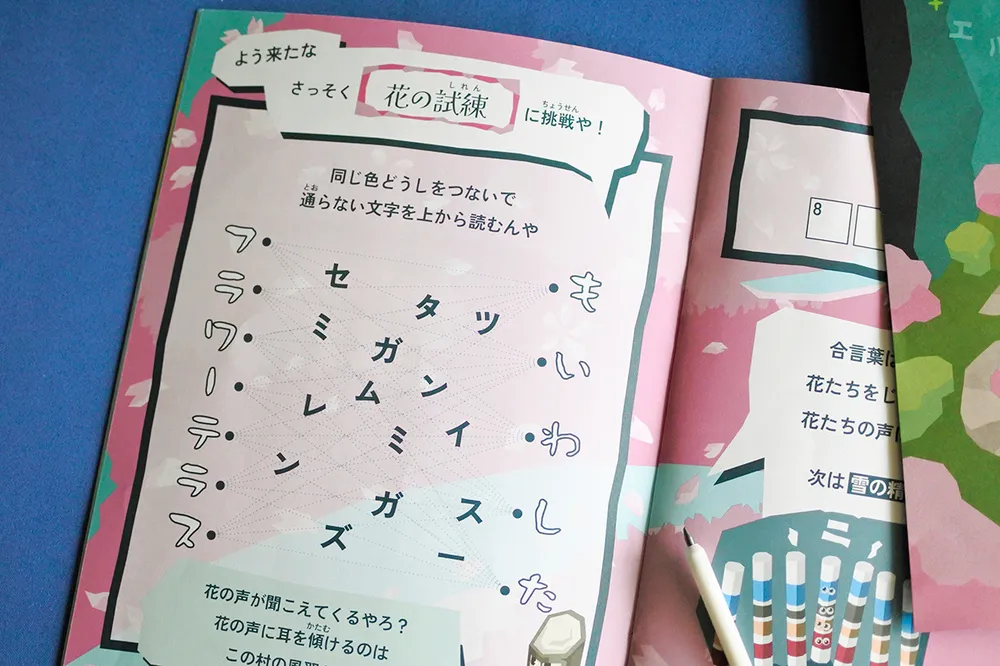 よう来たな
さっそく
花の試練
しれん
に挑戦や！
ちょうせん
同じ色どうしをつないで
通らない文字を上から読むんや
とお
フ
ラ
ワ
ー
テ
ラ
ス
セ
タ
ッ
ミ
ガ
ム
ン
レ
ミ
イ
ン
ガ
ス
ズ
ー
き
い
わ
し
た
花の声が聞こえてくるやろ？
花の声に耳を傾けるのは
かたむ
この村の風習
8
合言葉は
花たちをし
花たちの声
次は雪の精
エ
ル